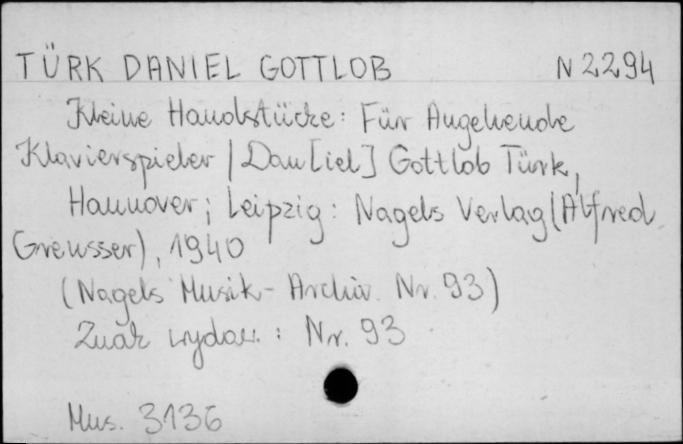 TÜRK DANIEL GOTTLOB N 2294
Kleine Handstücke: Für Angehende
Klavierspieler / Dan[iel] Gottlob Türk,
Hannover; Leipzig: Nagels Verlag (Alfred
Grensser), 1940
(Nagels Musik-Archiv. Nr. 93)
Znak wydaw.: Nr. 93
Mus. 3136